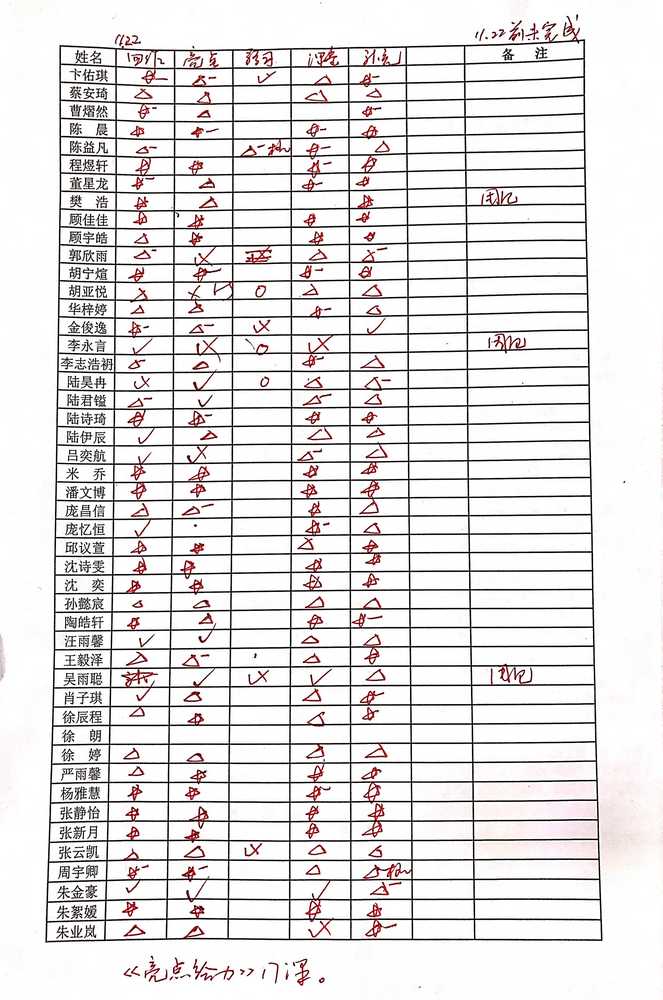 11.22 11.22前未完成
姓名 亮点 备 注
卞佑琪 ☆- △- ✓ △ ☆-
蔡安琦 △ △ △ △
曹熠然 ☆- △ ☆-
陈 晨 ☆ ☆- ☆- ☆-
陈益凡 △- △- ☆- △
程煜轩 ☆ ☆ ☆- ☆
董星龙 ☆- △ ☆- ☆
樊 浩 ☆ △ ☆ 周记
顾佳佳 ☆ ☆ ☆ ☆
顾宇皓 △ ☆ ☆ ☆
郭欣雨 △- △
胡宁煊 ☆ ☆- ☆- ☆
胡亚悦 △ ○ △ △
华梓婷 △ △ ☆- △
金俊逸 ☆- △- ✓
李永言 ✓ ○ 周记
李志浩礽 △- △ ☆- △
陆昊冉 ✓ ○ △ △-
陆君镒 △- ✓ △- △
陆诗琦 ☆ ☆- ☆ ☆
陆伊辰 ✓ △ △ △
吕奕航 ✓ △- △
米 乔 ☆ ☆ ☆ ☆
潘文博 ☆ ☆ ☆ ☆
庞昌信 △ △- ☆ △
庞忆恒 ✓ ☆- △
邱议萱 ☆ ☆ △ ☆
沈诗雯 ☆ ☆ ☆ ☆
沈 奕 ☆ ☆ ☆ ☆
孙懿宸 △ △ △ △
陶皓轩 ☆ △ ☆ ☆-
汪雨馨 ✓ ✓ △ △
王毅泽 △ △- △ ☆
吴雨聪 ✓ ✓ △ 周记
肖子琪 ✓ △ △ ☆-
徐辰程 △ ☆ △ ☆
徐 朗
徐 婷 △ △ △ △
严雨馨 △ ☆ ☆ ☆
杨雅慧 ☆ ☆ ☆- ☆
张静怡 ☆ ☆ ☆ ☆
张新月 ☆ ☆ ☆ ☆
张云凯 △ △ △ △
周宇卿 ☆- ☆- △ △-
朱金豪 ✓ ✓ ✓ △-
朱絮媛 ☆ ☆ ☆ ☆
朱业岚 △ △ ☆-
《亮点给力》17课。